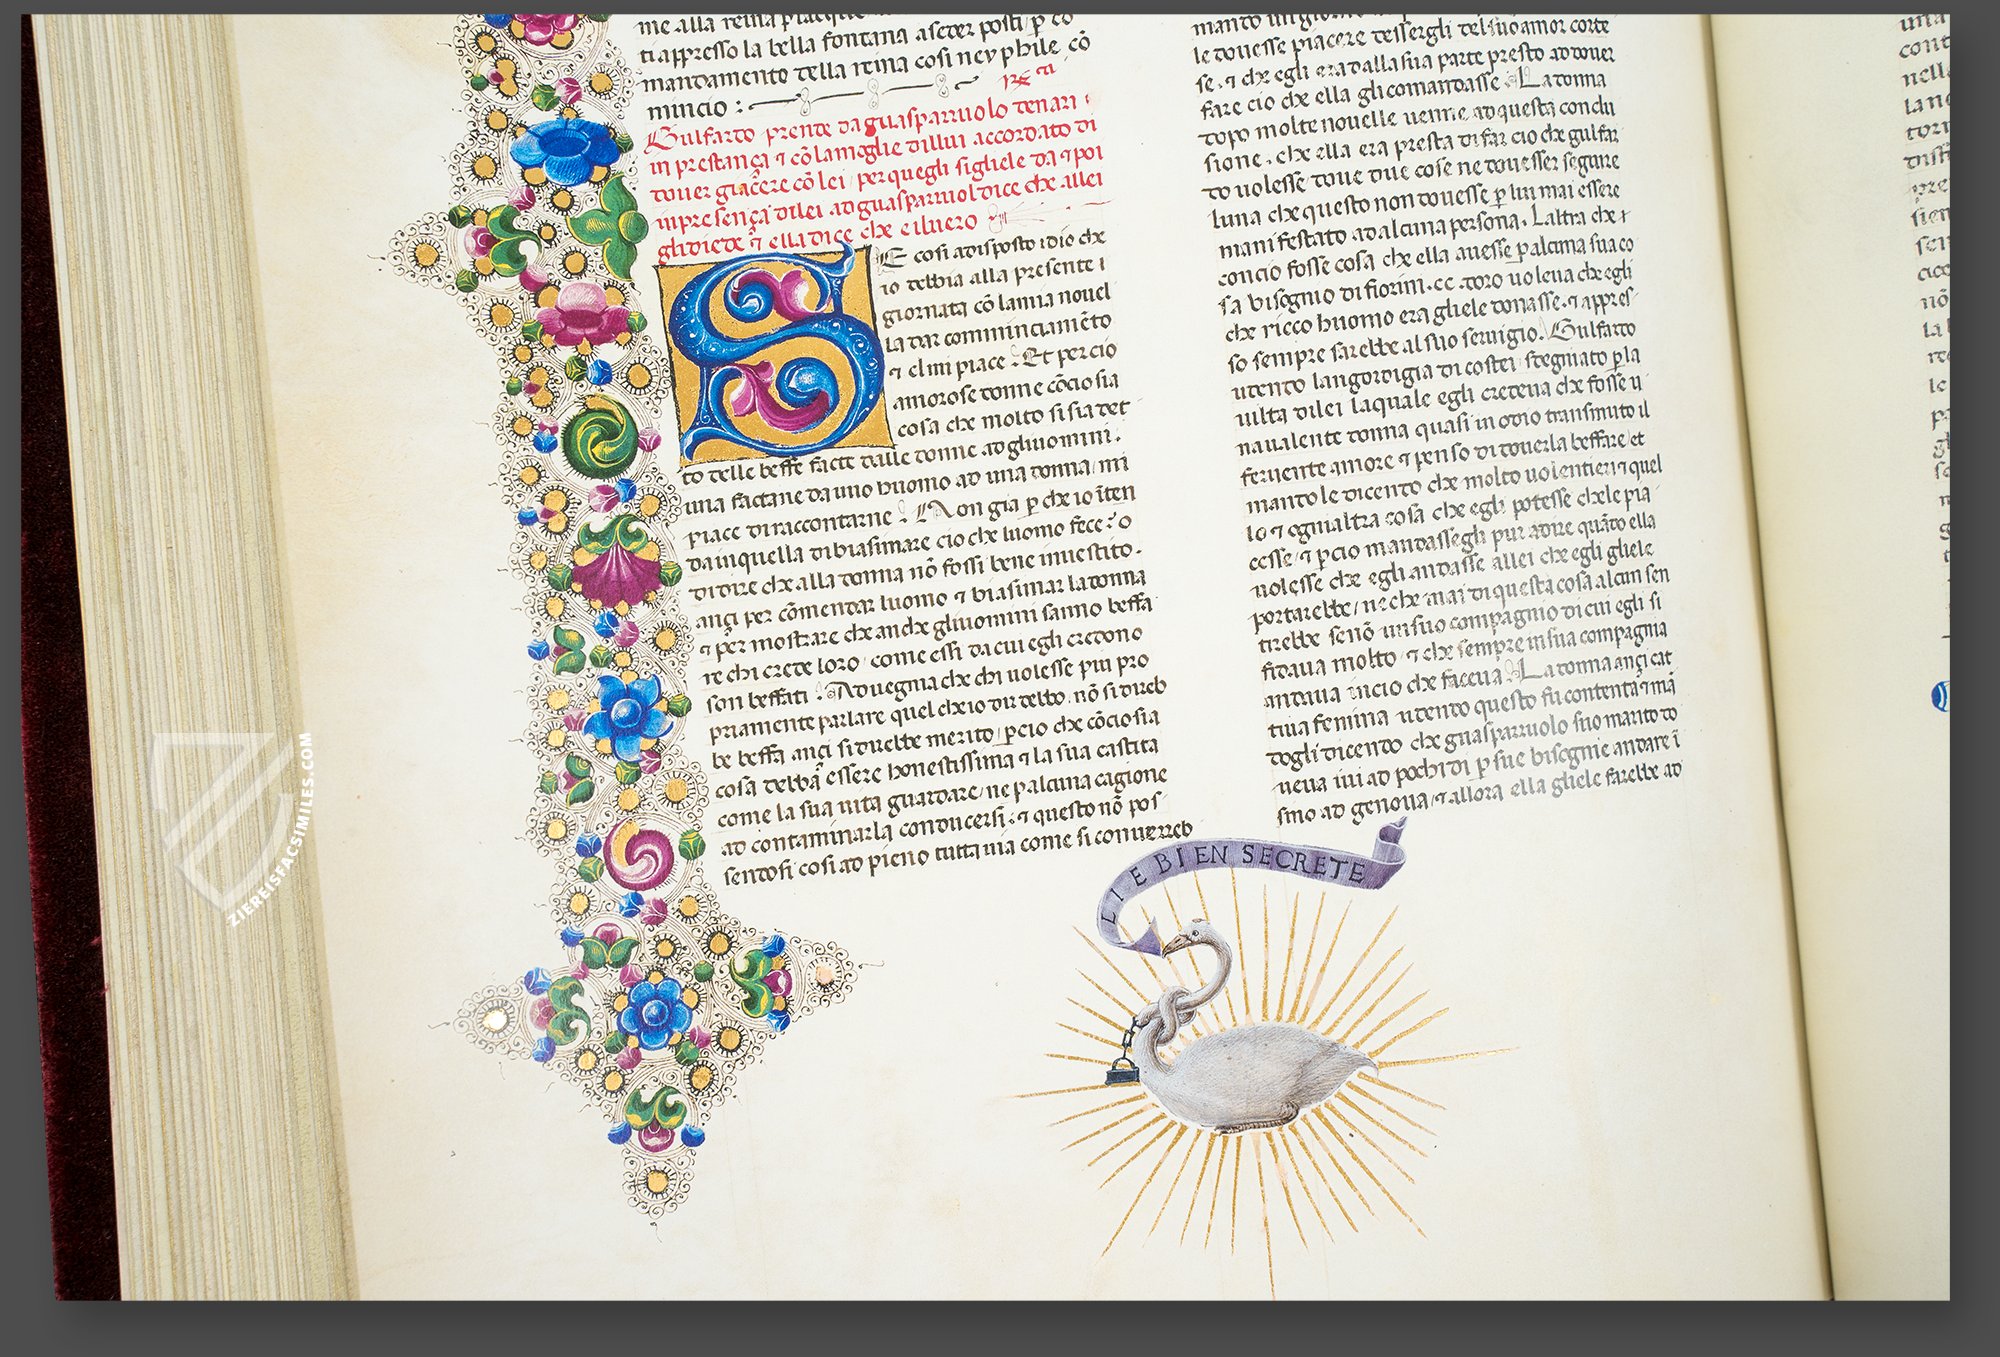 ti appresso la bella fontana a seder posti p̱ co
mandamento della reina cosi neyphile cō
mincio :
Gulfardo prende da guasparruolo denari
in prestança ⁊ cō la moglie di llui accordato di
douer giacere cō lei per quegli si gliele da ⁊ poi
in presença di lei ad guasparruol dice che allei
gli diede ⁊ ella dice che e il uero
SE cosi a disposto idio che
io debbia alla presente
giornata cō la mia nouel
la dar comminciamēto
⁊ el mi piace . Et per cio
amorose donne cōcio sia
cosa che molto si sia det
to delle beffe facte dalle donne ad gli uomini .
una factane da uno huomo ad una donna mi
piace di raccontarne . Non gia p̱ che io īten
da in quella di biasimare cio che luomo fece o
di dire che alla donna nō fossi bene inuestito .
ançi per cōmendar luomo ⁊ biasimar la donna
⁊ per mostrare che anche gli uomini sanno beffa
re chi crede loro come essi da cui egli credono
son beffati . Aduegna che chi uolesse piu pro
priamente parlare quel che io dir debbo nō si direb
be beffa ançi si direbbe merito p̱cio che cōcio sia
cosa debbā essere honestissima ⁊ la sua castita
come la sua uita guardare ne p̱ alcuna cagione
ad contaminarla conducersi . ⁊ questo nō pos
sendosi cosi ad pieno tutta uia come si conuerreb
le douesse piacere dessergli del suo amor corte
se . ⁊ che egli era dalla sua parte presto ad douer
fare cio che ella gli comandasse . La donna
dopo molte nouelle uenne ad questa conclu
sione . che ella era presta di far cio che gulfar
do uolesse doue due cose ne douesser seguire
luna che questo non douesse p̱ lui mai essere
manifestato ad alcuna persona . Laltra che
concio fosse cosa che ella auesse p̱ alcuna sua co
sa bisogno di fiorini . cc . doro uoleua che egli
che ricco huomo era gliele donasse . ⁊ appres
so sempre sarebbe al suo seruigio . Gulfardo
udendo langordigia di costei sdegnato p̱ la
uilta di lei laquale egli credeua che fosse u
na ualente donna quasi in odio transmuto il
feruente amore ⁊ penso di douerla beffare et
mandole dicendo che molto uolentieri ⁊ quel
lo ⁊ ogni altra cosa che egli potesse che le pia
cesse . ⁊ p̱cio mandassegli pur a dire quādo ella
uolesse che egli andasse allei che egli gliele
portarebbe ne che mai di questa cosa alcun sen
tirebbe senō un suo compagno di cui egli si
fidaua molto ⁊ che sempre in sua compagnia
andaua in cio che faceua . La donna ançi cat
tiua femina udendo questo fu contenta ⁊ mā
dogli dicendo che guasparruolo suo marito do
ueua iui ad pochi di p̱ sue bisogne andare ī
sino ad genoua ⁊ allora ella gliele farebbe ad
LIE BIEN SECRETE
ZIEREISFACSIMILES.COM